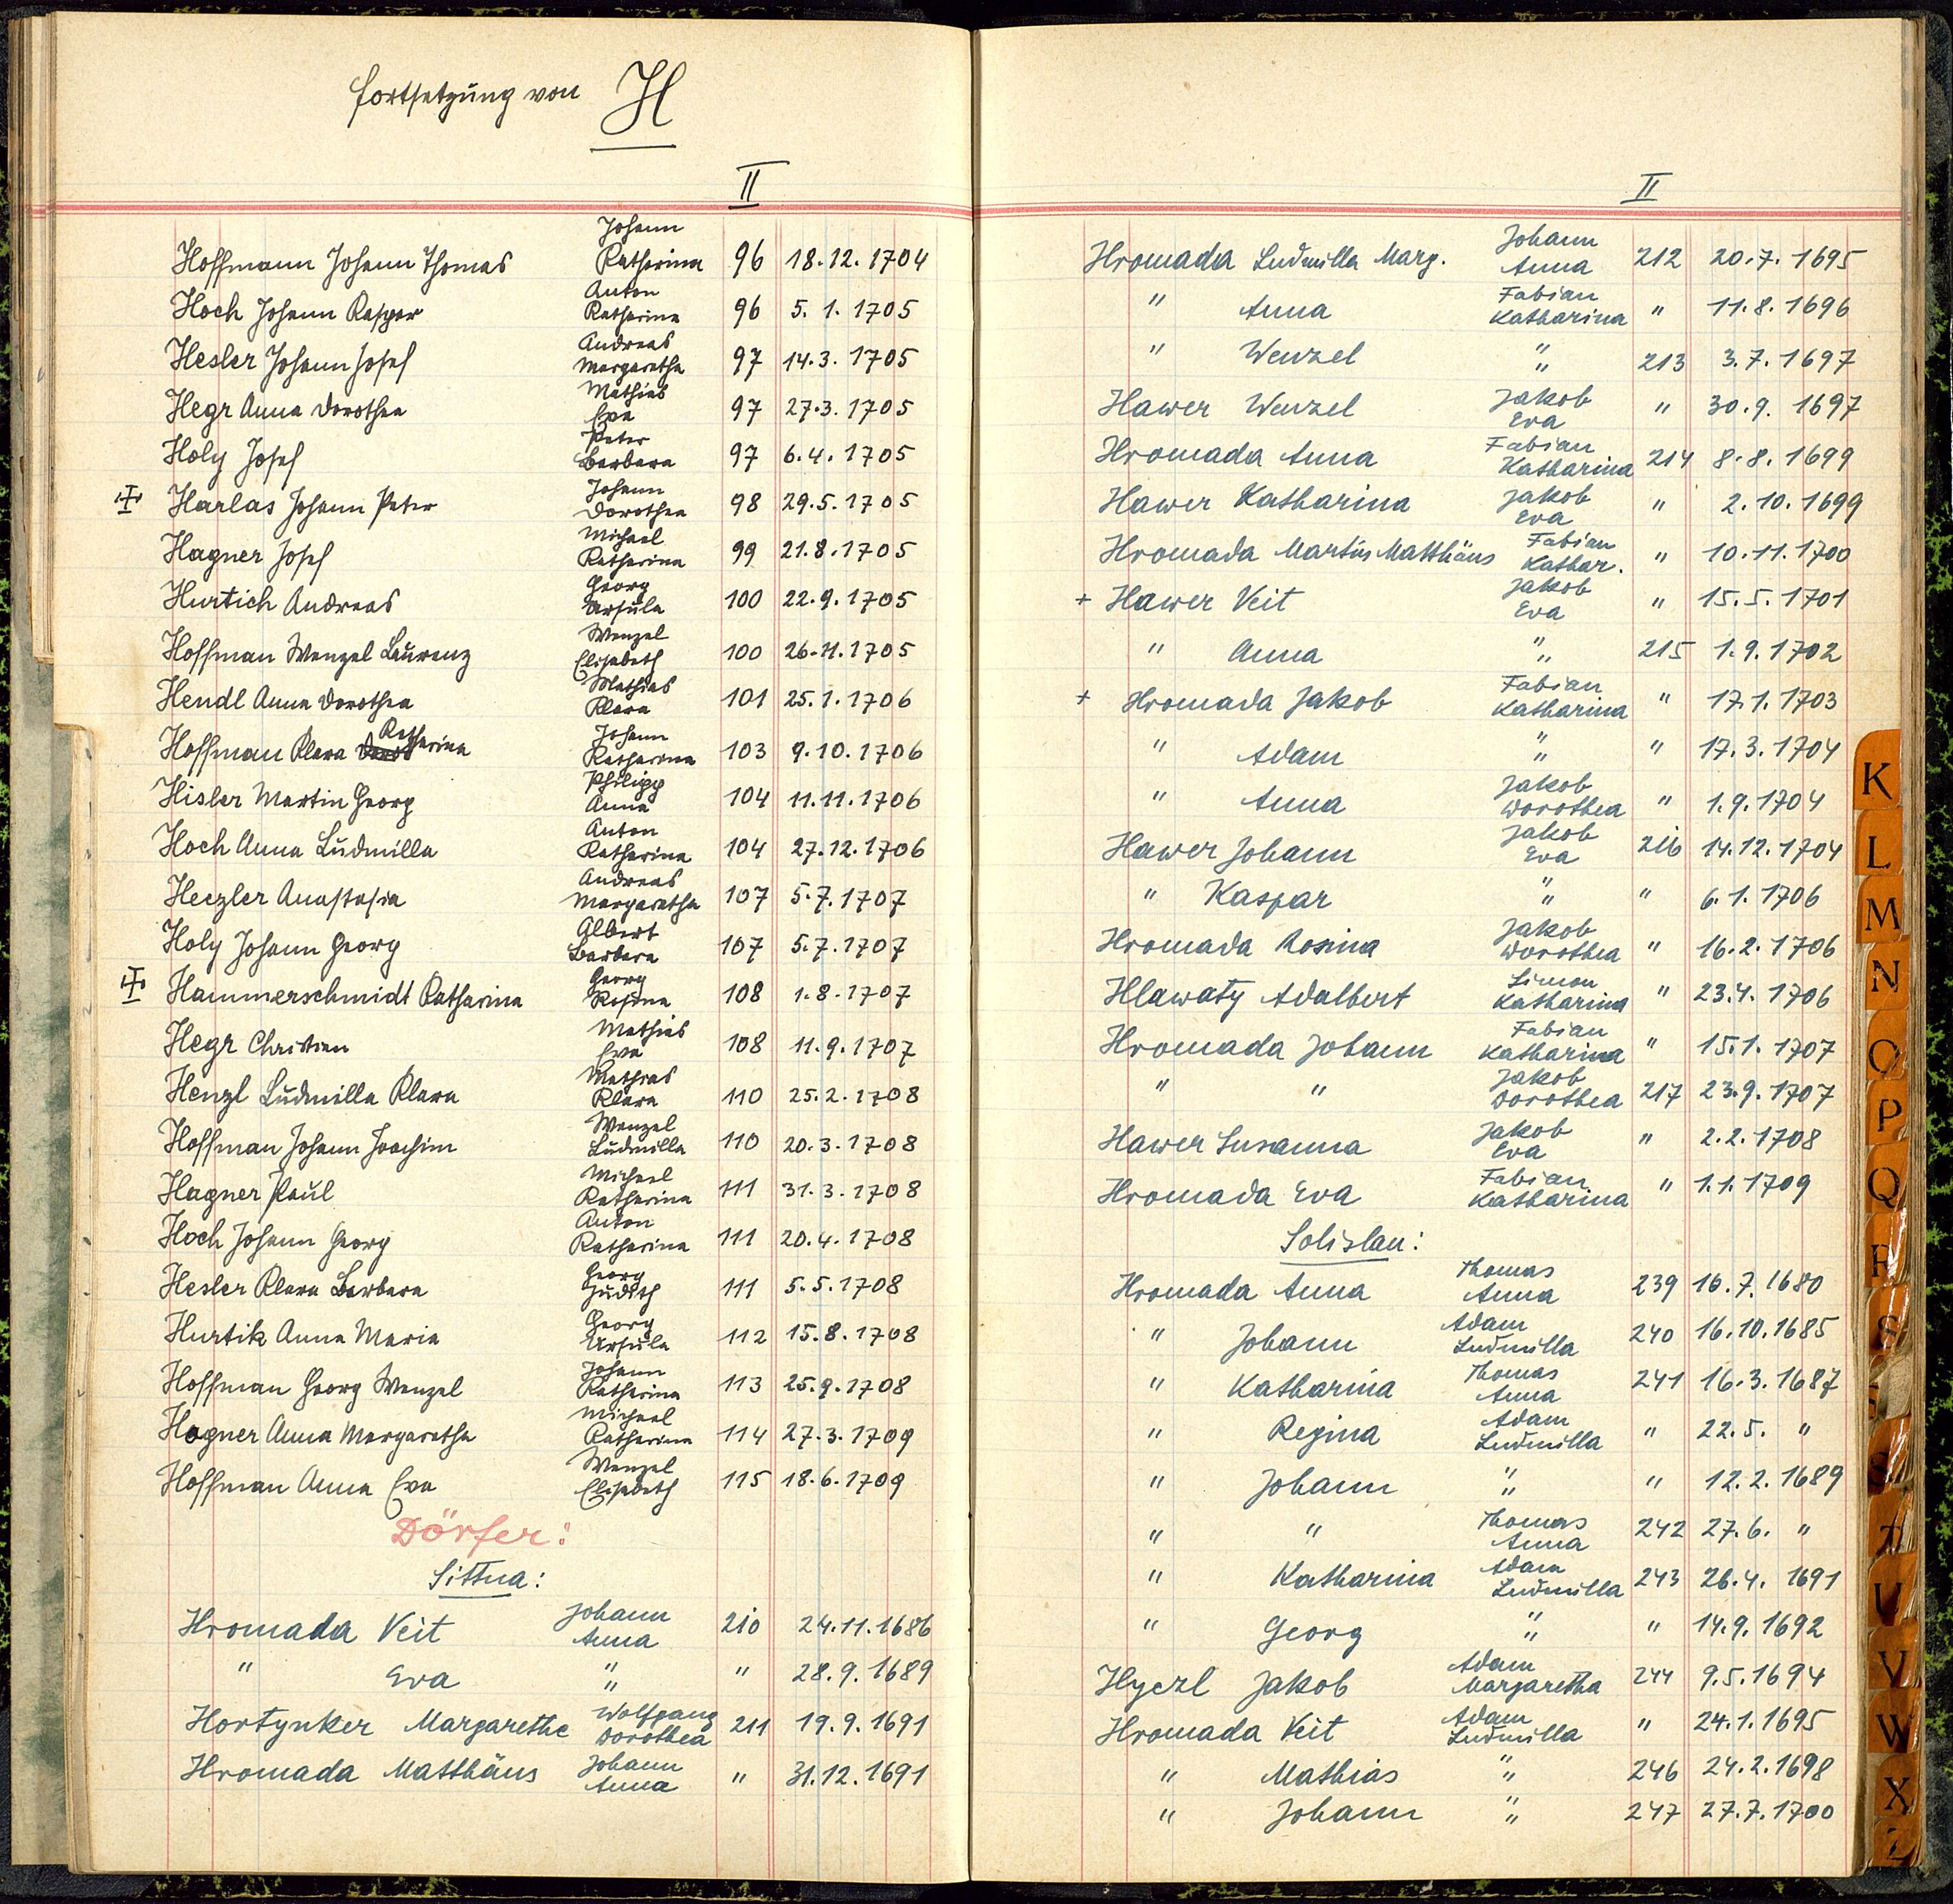 Fortsetzung von H
II
Johann
Hoffmann Johann Thomas Katharina 96 18.12.1704
Anton
Hoch Johann Kaspar Katharina 96 5.1.1705
Andreas
Hesler Johann Josef Margaretha 97 14.3.1705
Mathias
Hegr Anna Dorothea Eva 97 27.3.1705
Peter
Holy Josef Barbara 97 6.4.1705
Johann
Harlas Johann Peter Dorothea 98 29.5.1705
Michael
Hagner Josef Katharina 99 21.8.1705
Georg
Hurtich Andreas Ursula 100 22.9.1705
Wenzel
Hoffman Wenzel Laurenz Elisabeth 100 26.11.1705
Mathias
Hendl Anna Dorothea Klara 101 25.1.1706
Katharina Johann
Hoffman Klara Katharina 103 9.10.1706
Philipp
Hisler Martin Georg Anna 104 11.11.1706
Anton
Hoch Anna Ludmilla Katharina 104 27.12.1706
Andreas
Heczler Anastasia Margaretha 107 5.7.1707
Albert
Holy Johann Georg Barbara 107 5.7.1707
Georg
Hammerschmidt Katharina Rosina 108 1.8.1707
Mathias
Hegr Christian Eva 108 11.9.1707
Mathias
Henzl Ludmilla Klara Klara 110 25.2.1708
Wenzel
Hoffman Johann Joachim Ludmilla 110 20.3.1708
Michael
Hagner Paul Katharina 111 31.3.1708
Anton
Hoch Johann Georg Katharina 111 20.4.1708
Georg
Hesler Klara Barbara Judith 111 5.5.1708
Georg
Hurtik Anna Maria Ursula 112 15.8.1708
Johann
Hoffman Georg Wenzel Katharina 113 25.9.1708
Michael
Hagner Anna Margaretha Katharina 114 27.3.1709
Wenzel
Hoffman Anna Eva Elisabeth 115 18.6.1709
Dörfer:
Sittna:
Johann
Hromada Veit Anna 210 24.11.1686
"
" Eva " " 28.9.1689
Wolfgang
Hortynker Margarethe Dorothea 211 19.9.1691
Johann
Hromada Matthäus Anna " 31.12.1691
II
Johann
Hromada Ludmilla Marg. Anna 212 20.7.1695
Fabian
" Anna Katharina " 11.8.1696
"
" Wenzel " 213 3.7.1697
Jakob
Hawer Wenzel Eva " 30.9.1697
Fabian
Hromada Anna Katharina 214 8.8.1699
Jakob
Hawer Katharina Eva " 2.10.1699
Fabian
Hromada Martin Matthäus Kathar. " 10.11.1700
Jakob
+ Hawer Veit Eva " 15.5.1701
"
" Anna " 215 1.9.1702
Fabian
+ Hromada Jakob Katharina " 17.1.1703
"
" Adam " " 17.3.1704
Jakob
" Anna Dorothea " 1.9.1704
Jakob
Hawer Johann Eva 216 14.12.1704
"
" Kaspar " " 6.1.1706
Jakob
Hromada Rosina Dorothea " 16.2.1706
Simon
Hlawaty Adalbert Katharina " 23.4.1706
Fabian
Hromada Johann Katharina " 15.1.1707
Jakob
" " Dorothea 217 23.9.1707
Jakob
Hawer Susanna Eva " 2.2.1708
Fabian
Hromada Eva Katharina " 1.1.1709
Solislau:
Thomas
Hromada Anna Anna 239 16.7.1680
Adam
" Johann Ludmilla 240 16.10.1685
Thomas
" Katharina Anna 241 16.3.1687
Adam
" Regina Ludmilla " 22.5. "
"
" Johann " " 12.2.1689
Thomas
" " Anna 242 27.6. "
Adam
" Katharina Ludmilla 243 26.4.1691
"
" Georg " " 14.9.1692
Adam
Hyczl Jakob Margaretha 244 9.5.1694
Adam
Hromada Veit Ludmilla " 24.1.1695
"
" Mathias " 246 24.2.1698
"
" Johann " 247 27.7.1700
K
L
M
N
O
P
Q
R
S
T
U
V
W
X
Z